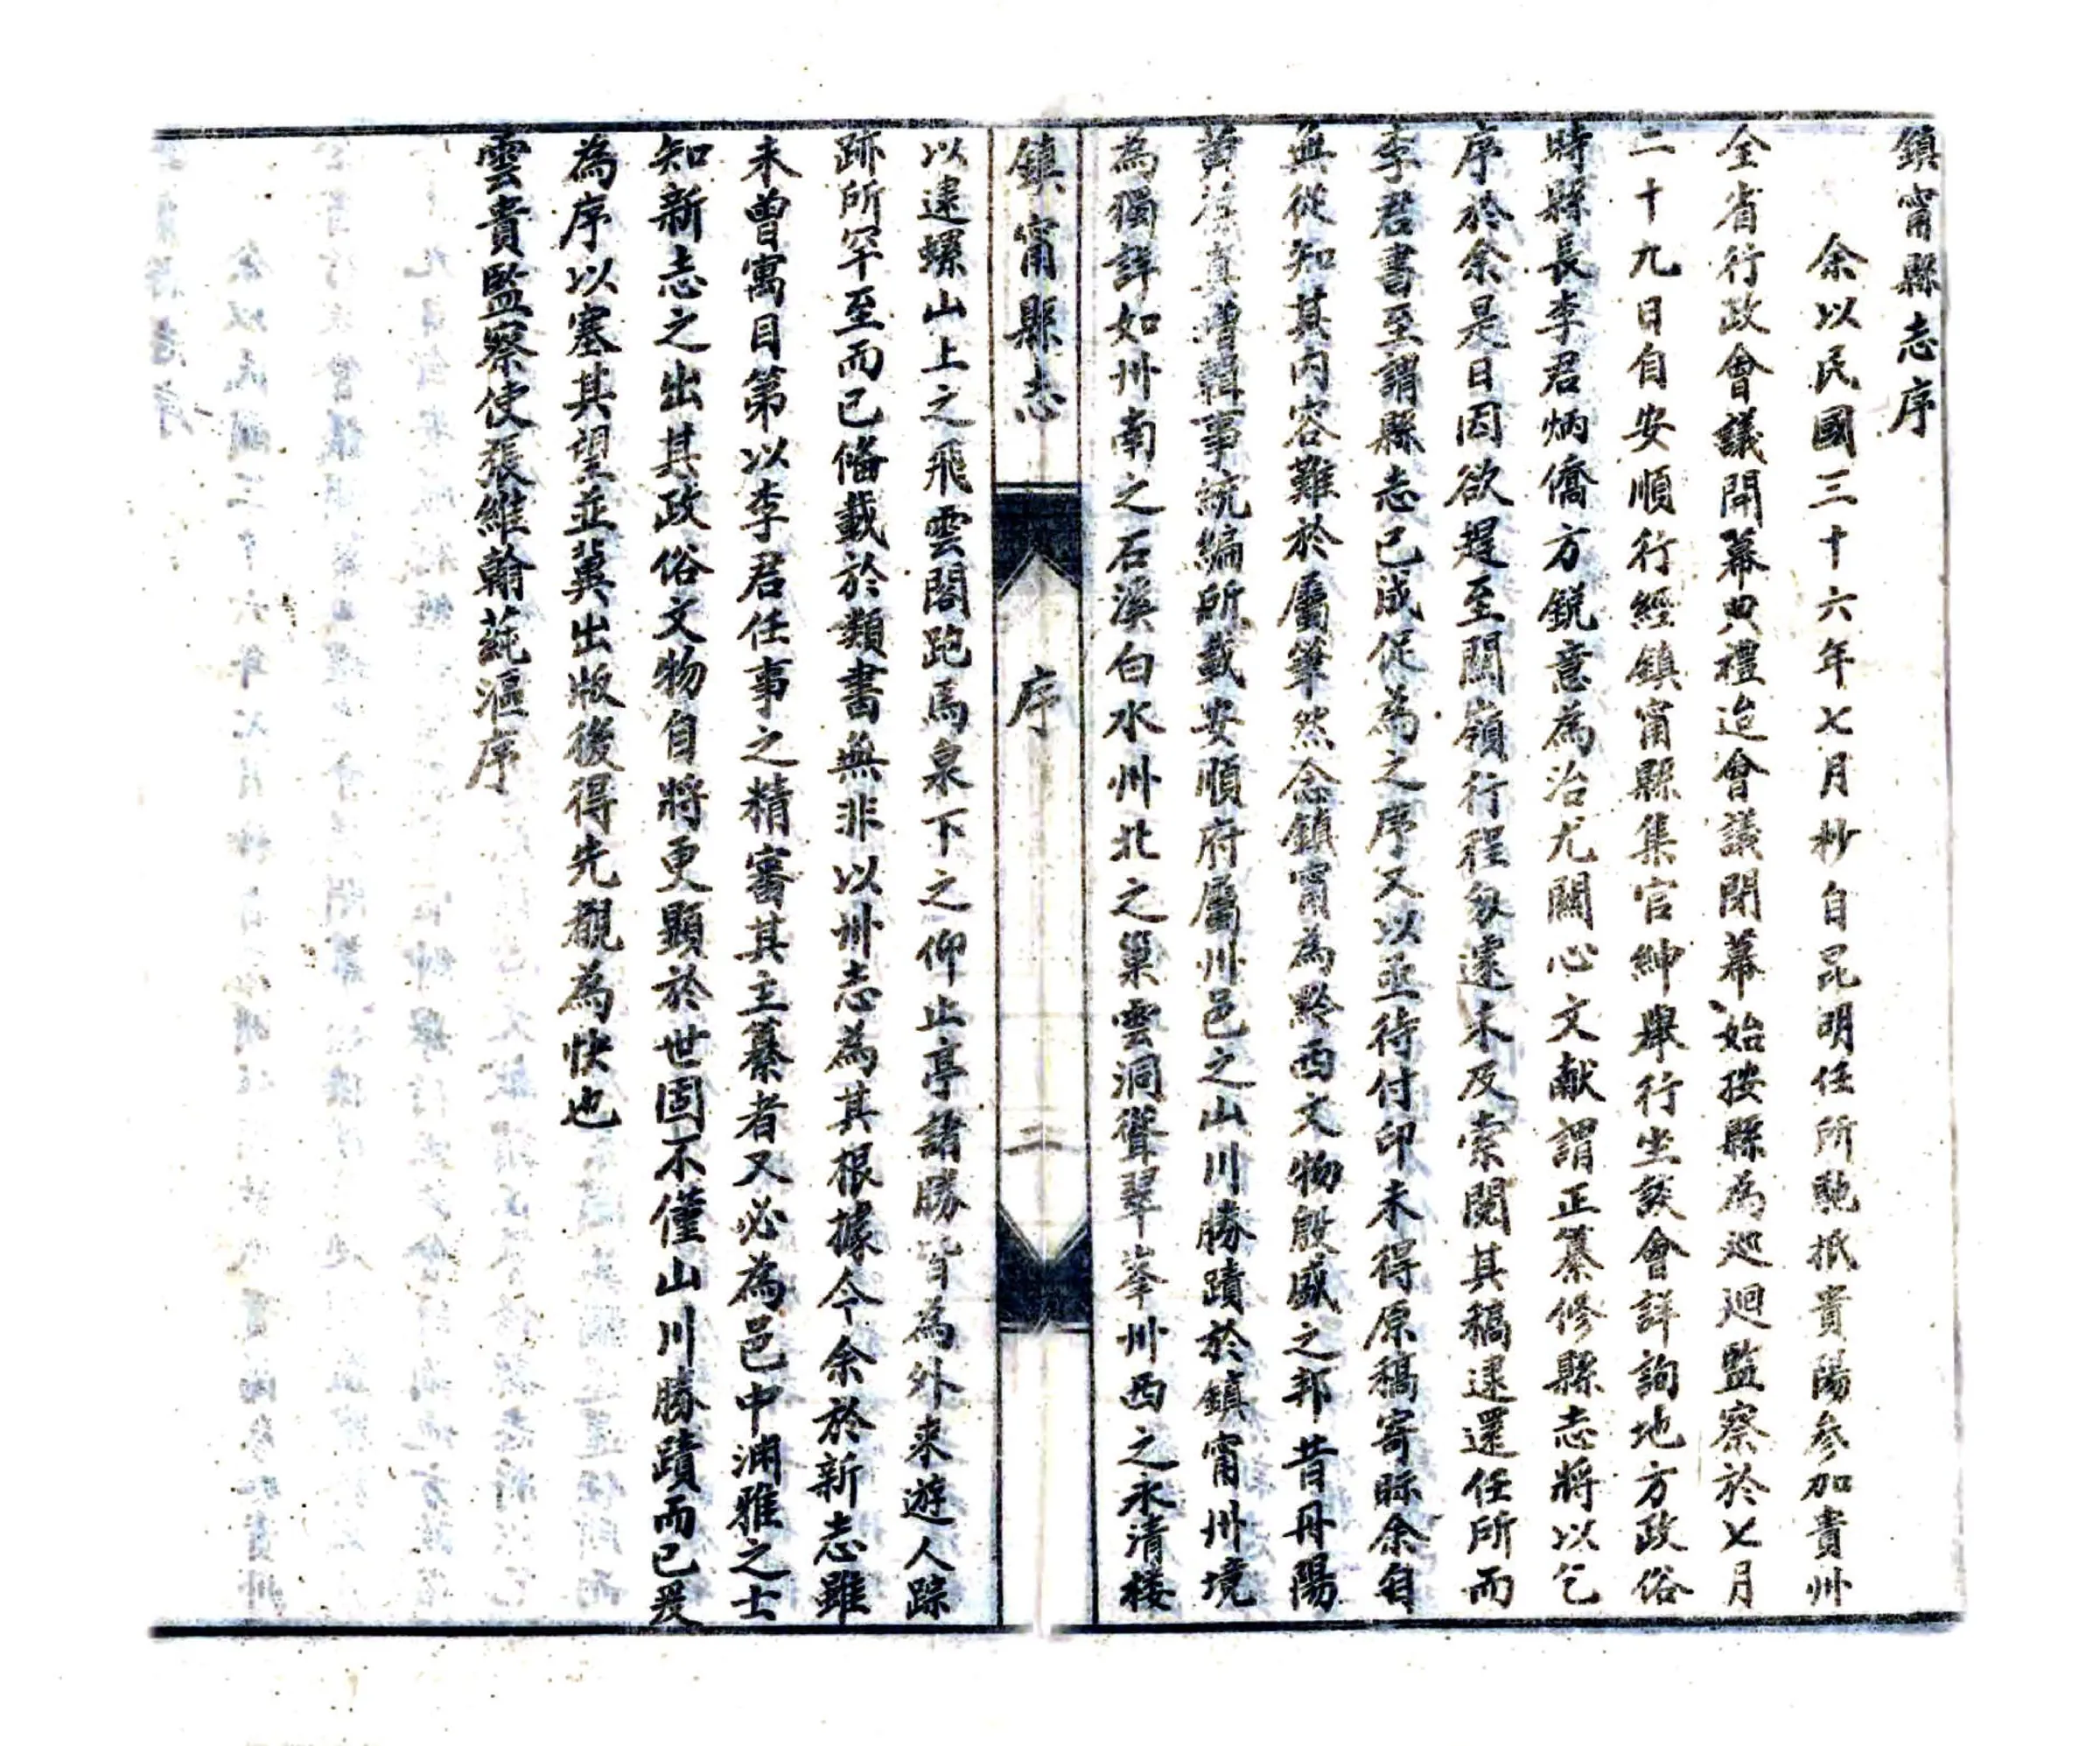 鎮甯縣志序
余以民國三十六年七月杪自昆明任所馳抵貴陽參加貴州
全省行政會議開幕典禮迨會議閉幕始按縣為巡迴監察於七月
二十九日自安順行經鎮甯縣集官紳舉行坐談會詳詢地方政俗
時縣長李君炳僑方銳意為治尤關心文献謂正纂修縣志將以乞
序於余是日因欲趕至關嶺行程匆遽未及索閱其稿逮還任所而
李君書至謂縣志已成促為之序又以亟待付印未得原稿寄眎余自
無從知其內容難於屬筆然念鎮甯為黔西文物殷盛之邦昔丹陽
黃葆真增輯事統編所載安順府屬州邑之山川勝蹟於鎮甯州境
為獨詳如州南之石溪白水州北之巢雲洞聳翠峯州西之永清樓
鎮甯縣志
序
二
以逮螺山上之飛雲閣跑馬泉下之仰止亭諸勝皆為外來遊人踪
跡所罕至而已備載於類書無非以州志為其根據今余於新志雖
未曾寓目第以李君任事之精審其主纂者又必為邑中淵雅之士
知新志之出其政俗文物自將更顯於世固不僅山川勝蹟而已爰
為序以塞其望並冀出版後得先覩為快也
雲貴監察使張維翰蒓漚序